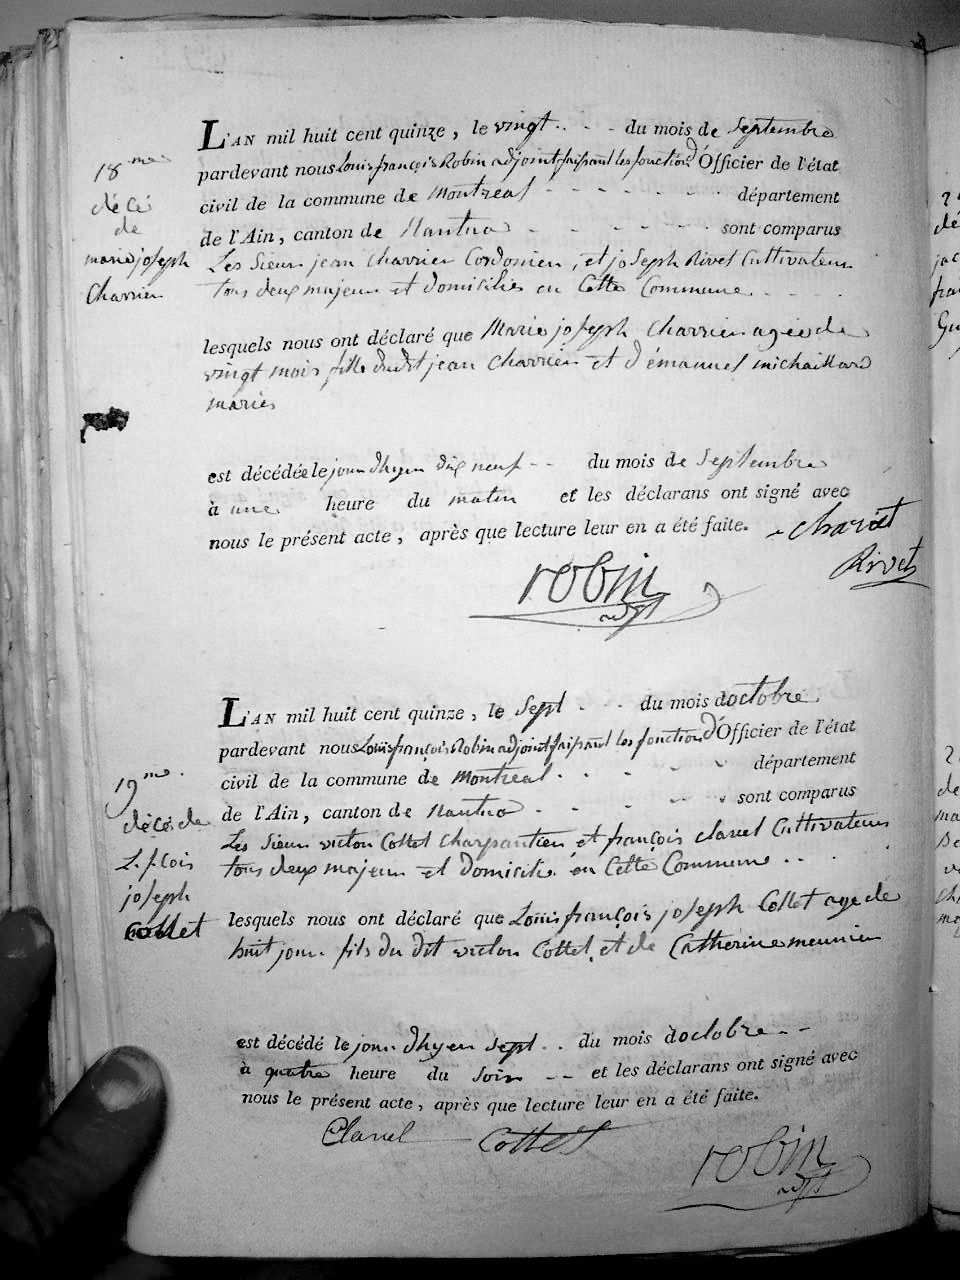 18me
décè
de
marie joseph
Charrier
L'AN mil huit cent quinze, le vingt du mois de Septembre
pardevant nous Louis françois Robin adjoint faisant les fonction d'Officier de l'état
civil de la commune de Montreal département
de l'Ain, canton de Nantua sont comparus
Les Sieur jean Charrier Cordonier, et joseph Rivet Cultivateur
tous deux majeur et domiciliés en Cette Commune
lesquels nous ont déclaré que Marie joseph Charrier agée de
vingt mois fille dudit jean Charrier et d'émanuel michaillard
mariés
est décédée le jour dhyer dix neuf du mois de Septembre
à une heure du matin et les déclarans ont signé avec
nous le présent acte, après que lecture leur en a été faite.
Rivet
robin
adjt
19me
décès de
L. f.cois
joseph
Collet
L'AN mil huit cent quinze, le Sept du mois doctobre
pardevant nous Louis françois Robin adjoint faisant les fonction d'Officier de l'état
civil de la commune de Montreal département
de l'Ain, canton de Nantua sont comparus
Les Sieur victor Collet Charpantier et françois clavel Cultivateur
tous deux majeur et domicilié en Cette Commune
lesquels nous ont déclaré que Louis françois joseph Collet age de
huit jour fils du dit victor Collet et de Catherine meunier
est décédé le jour dhyer Sept du mois doctobre
à quatre heure du Soir et les déclarans ont signé avec
nous le présent acte, après que lecture leur en a été faite.
Clavel Collet
robin
adjt